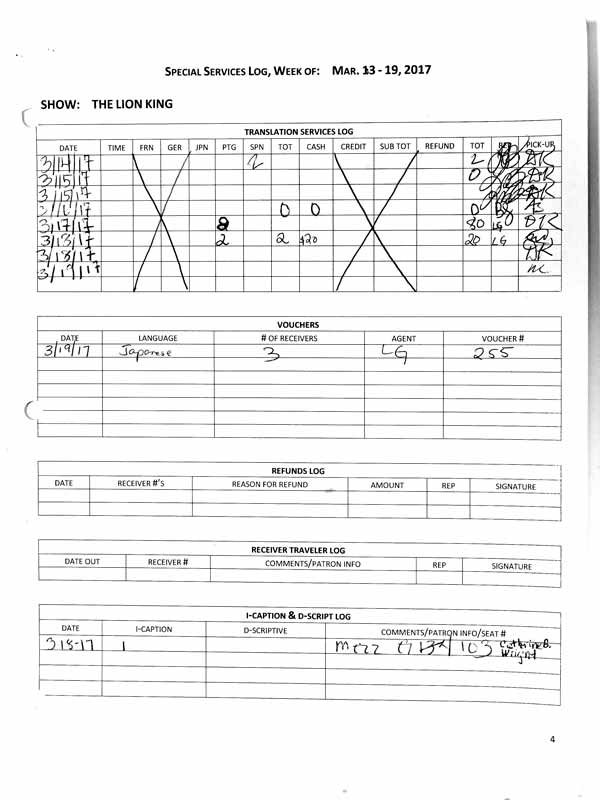 SPECIAL SERVICES LOG, WEEK OF: MAR. 13 - 19, 2017
SHOW: THE LION KING
TRANSLATION SERVICES LOG
DATE TIME FRN GER JPN PTG SPN TOT CASH CREDIT SUB TOT REFUND TOT REP PICK-UP
3/14/17 2 2 DR
3/15/17 0 DR
3/15/17 DR
3/16/17 0 0 0
3/17/17 80 LG DR
3/18/17 2 2 $20 20 LG
3/18/17 DR
3/19/17
VOUCHERS
DATE LANGUAGE # OF RECEIVERS AGENT VOUCHER #
3/19/17 Japanese 3 LG 255
REFUNDS LOG
DATE RECEIVER #'S REASON FOR REFUND AMOUNT REP SIGNATURE
RECEIVER TRAVELER LOG
DATE OUT RECEIVER # COMMENTS/PATRON INFO REP SIGNATURE
I-CAPTION & D-SCRIPT LOG
DATE I-CAPTION D-SCRIPTIVE COMMENTS/PATRON INFO/SEAT #
3-18-17 1 Mezz 103 Catherine B.
Wright
4